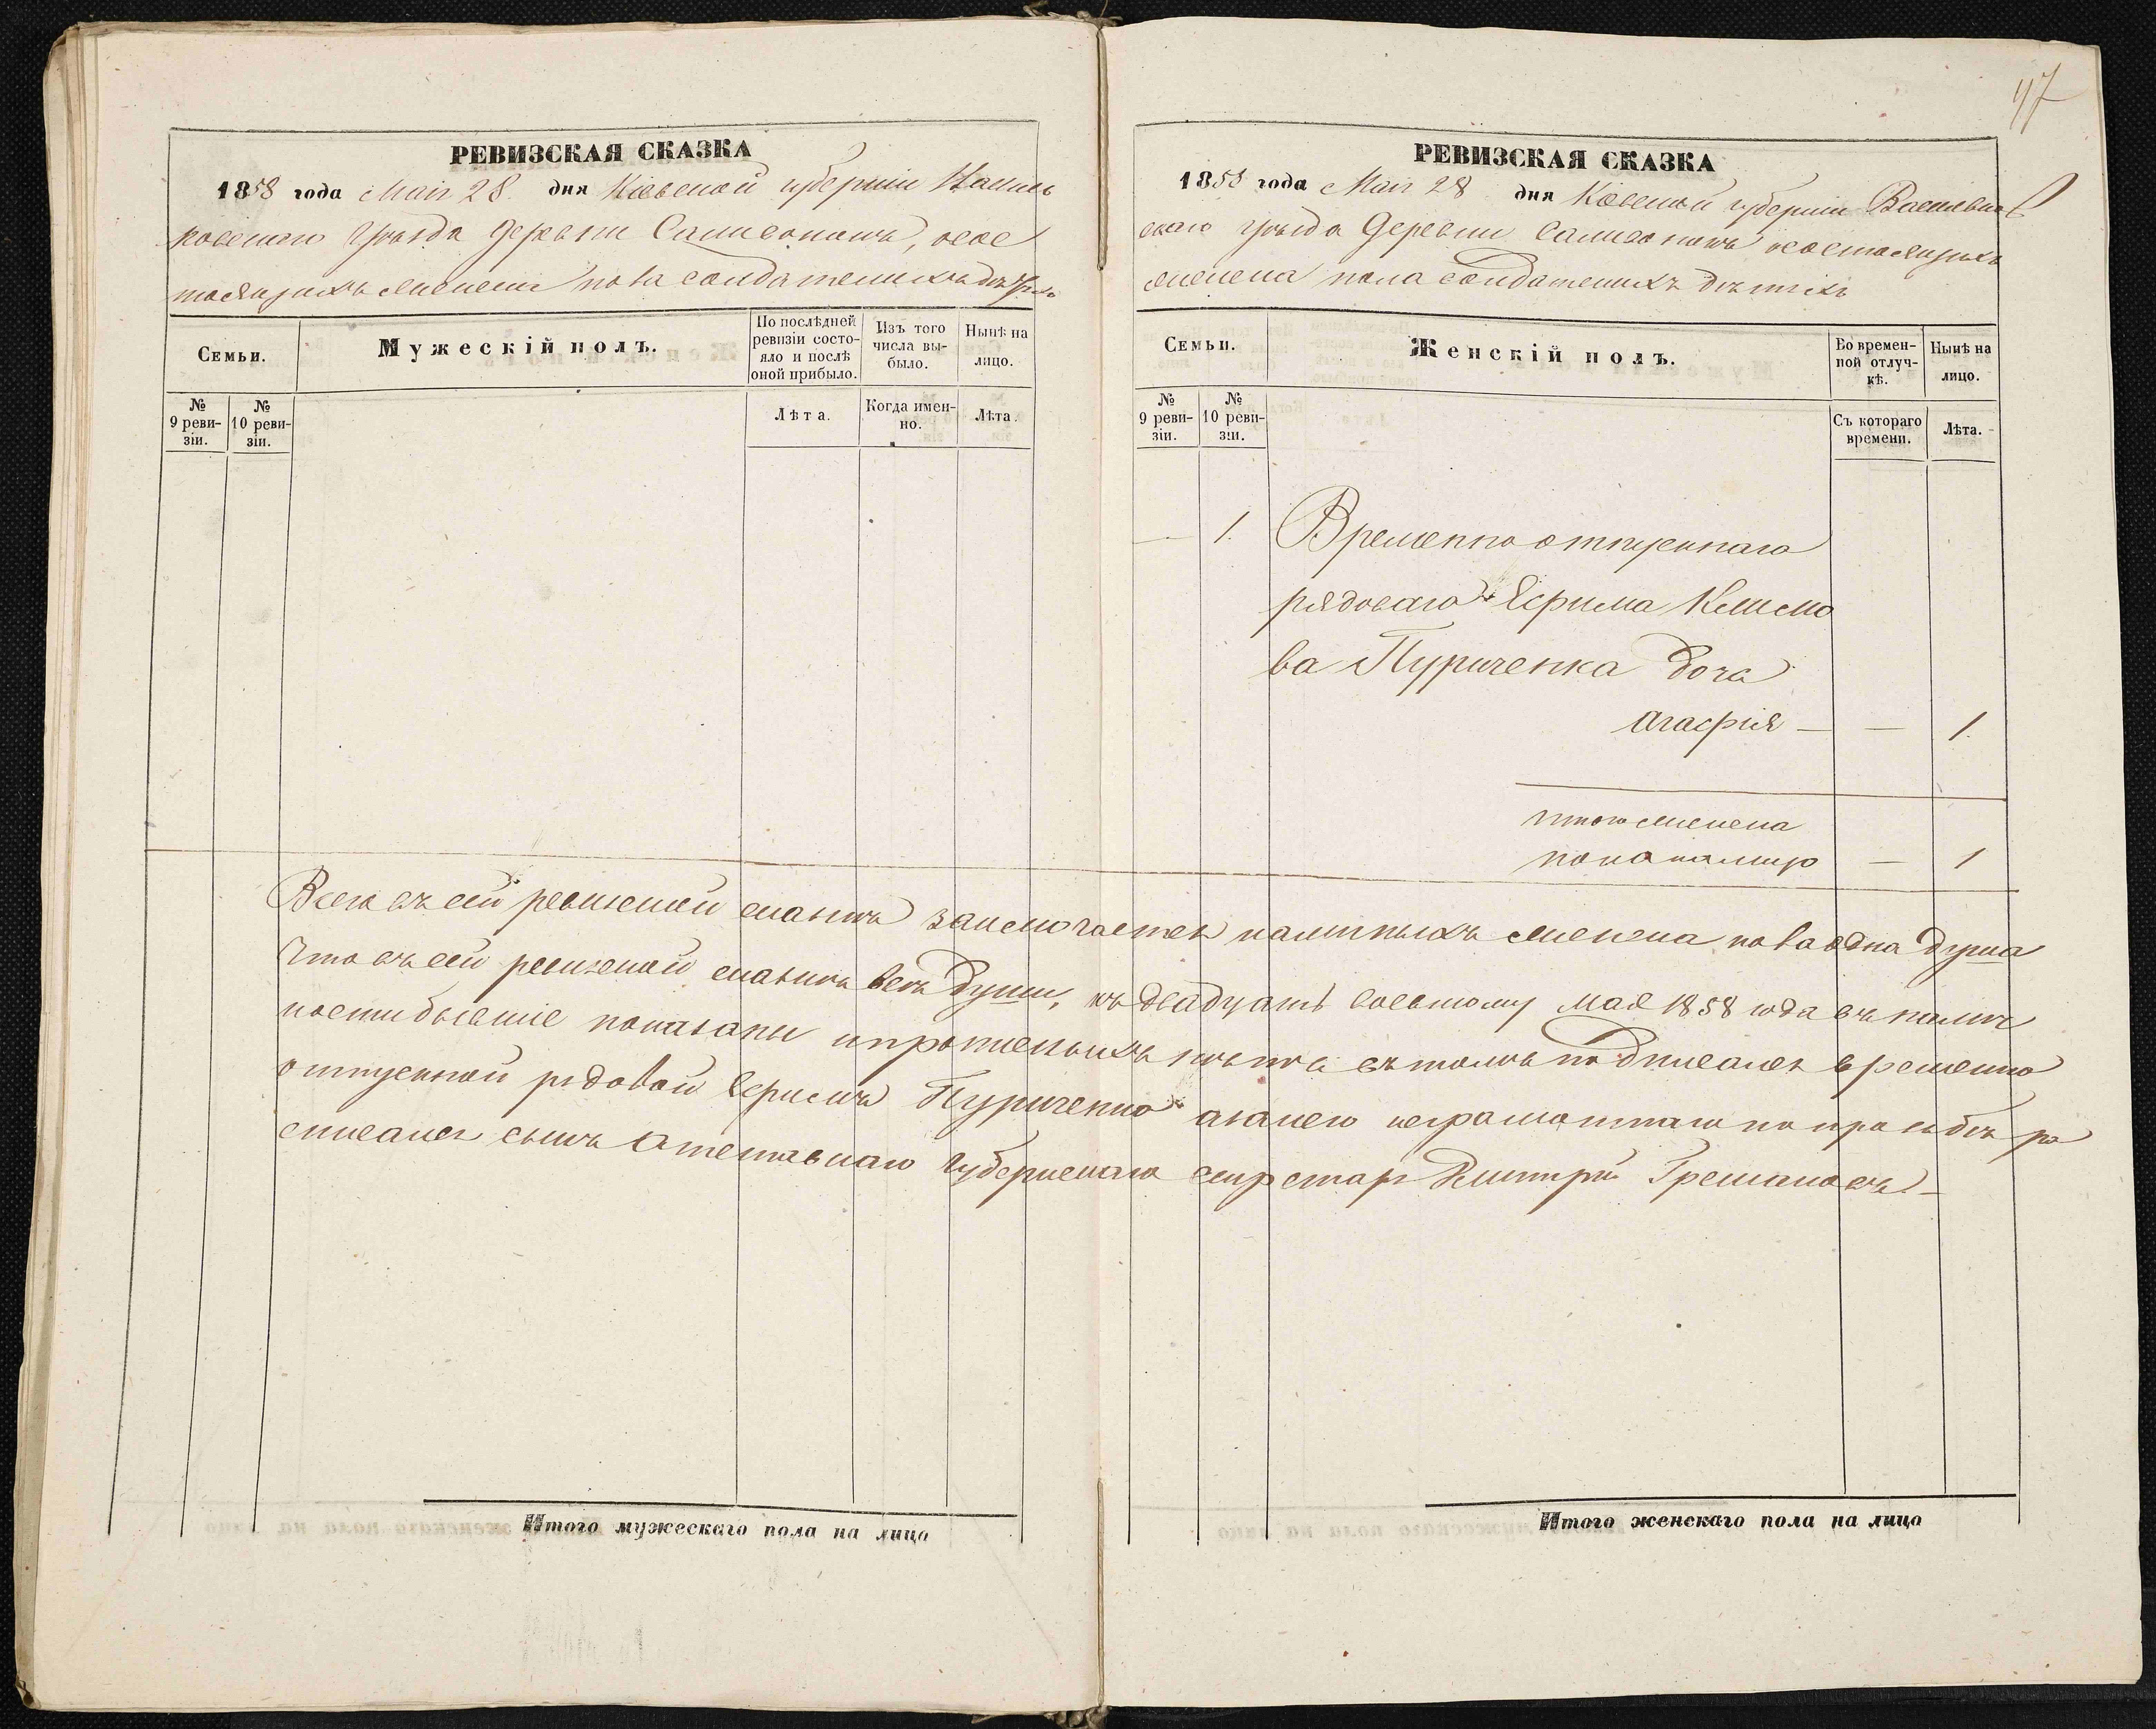 РЕВИЗСКАЯ СКАЗКА
1858 года Маія 28 дня Кіевской губерніи Василь
ковскаго Уѣзда Деревни Саливонокъ, о сос
тоящихъ женска пола солдатскихъ дѣтяхъ
Семьи.
Мужескій полъ.
По послѣдней ревизіи состо-
яло и послѣ
оной прибыло.
Изъ того
числа вы-
было.
Нынѣ на
лицо.
№
9 реви-
зіи.
№
10 реви-
зіи.
Лѣта.
Когда имен-
но.
Лѣта.
Итого мужескаго пола на лицо
47
РЕВИЗСКАЯ СКАЗКА
1858 года Маія 28 дня Кіевской губерніи Васильков
скаго Уѣзда Деревни Саливонокъ о состоящихъ
женска пола солдатскихъ дѣтяхъ
Семьи.
Женскій полъ.
Во времен-
ной отлуч-
кѣ.
Нынѣ на
лицо.
№
9 реви-
зіи.
№
10 реви-
зіи.
Съ котораго
времени.
Лѣта.
— 1. Временно отпускнаго
рядоваго Ефима Климо
ва Пуриченка доча
Агафія — — 1.
Итого женска
пола налицо — 1
Всего въ сей ревизской сказкѣ заключается наличныхъ женска пола одна душа
Что въ сей ревизской сказкѣ всѣ души, къ двадцать восьмому Мая 1858 года въ налич
ности бывшіе показаны и пропускныхъ нѣтъ въ томъ подписался временно
отпускной рядовой Ефимъ Пуриченко а за него неграмотнаго по просьбѣ ро
списался сынъ Атставнаго Губернскаго секретаря Дмитрій Грешановъ —
Итого женскаго пола на лицо